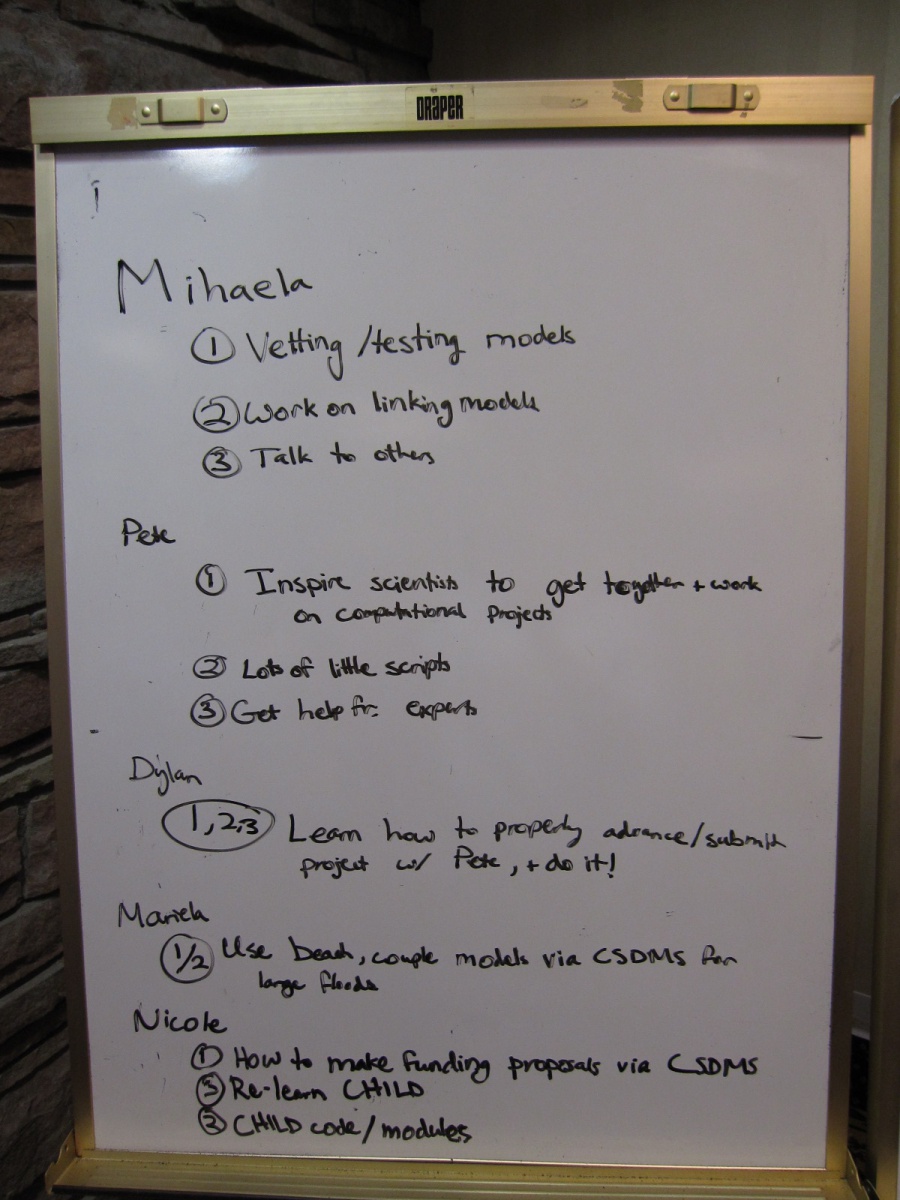 DRAPER
Mihaela
① Vetting /testing models
② Work on linking models
③ Talk to others
Pete
① Inspire scientists to get together + work
on computational Projects
② Lots of little scripts
③ Get help fr. experts
Dylan
1,2,3 Learn how to properly advance/submit
project w/ Pete, + do it!
Mariela
1/2 Use beach, couple models via CSDMS for
large floods
Nicole
① How to make funding proposals via CSDMS
③ Re-learn CHILD
② CHILD code/modules